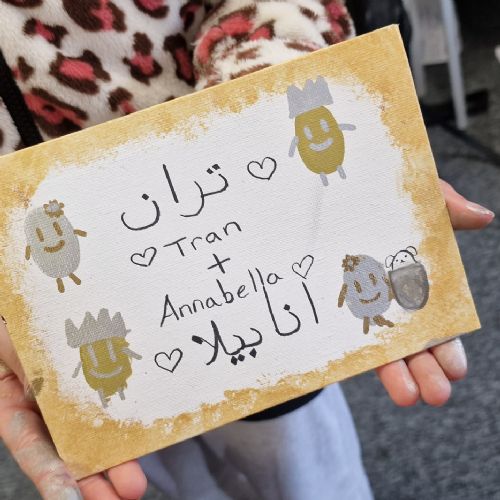 تران
Tran
+
Annabella
انابيلا